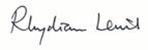 Rhydian Lewis